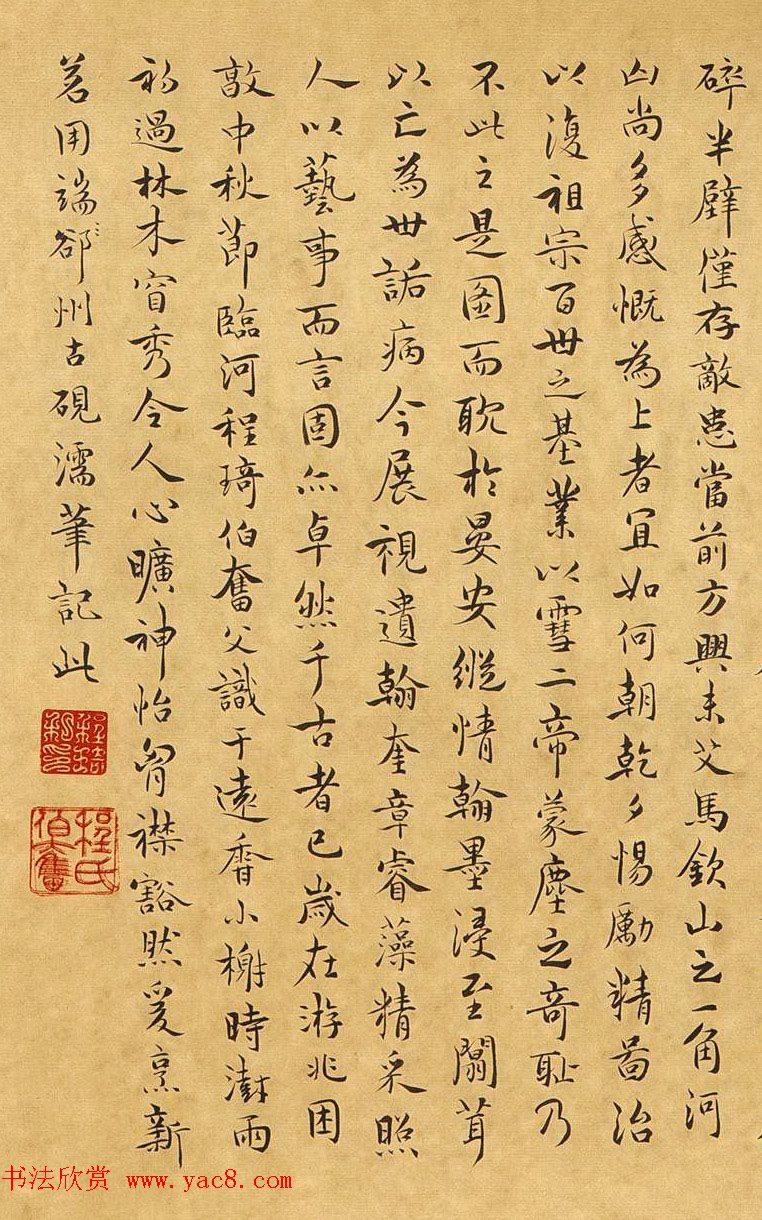 碎半壁僅存敵患當前方興未艾馬欽山之一角河
山尚多感慨為上者宜如何朝乾夕惕勵精啚治
以復祖宗百世之基業以雪二帝蒙塵之奇恥乃
不此之是圖而耽於晏安縱情翰墨浸至闒茸
以亡為世詬病今展視遺翰奎章睿藻精采照
人以藝事而言固亦卓然千古者已歲在游兆困
敦中秋節臨河程琦伯奮父識于遠香小榭時澍雨
初過林木窅秀令人心曠神怡胷襟豁然爰烹新
茗用端郤州古硯濡筆記此
程氏伯奮
书法欣赏 www.yac8.com